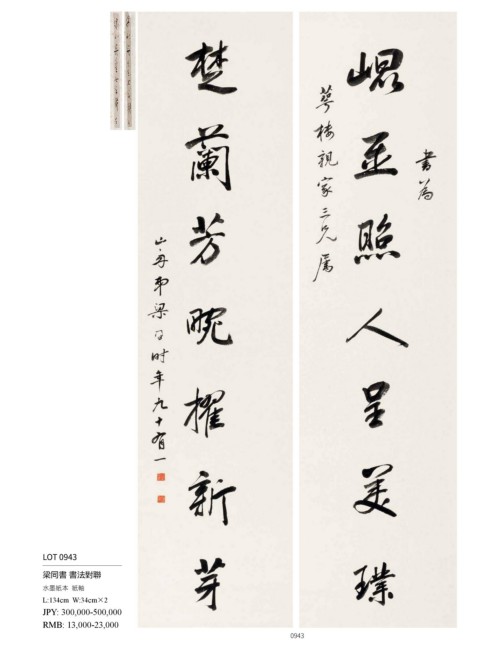 書為
崐玉照人呈美璞
萼樓親家三兄屬
楚蘭芳畹擢新芽
山舟弟梁同時年九十有一
LOT 0943
梁同書 書法對聯
水墨紙本 紙軸
L:134cm W:34cm×2
JPY: 300,000-500,000
RMB: 13,000-23,000
0943